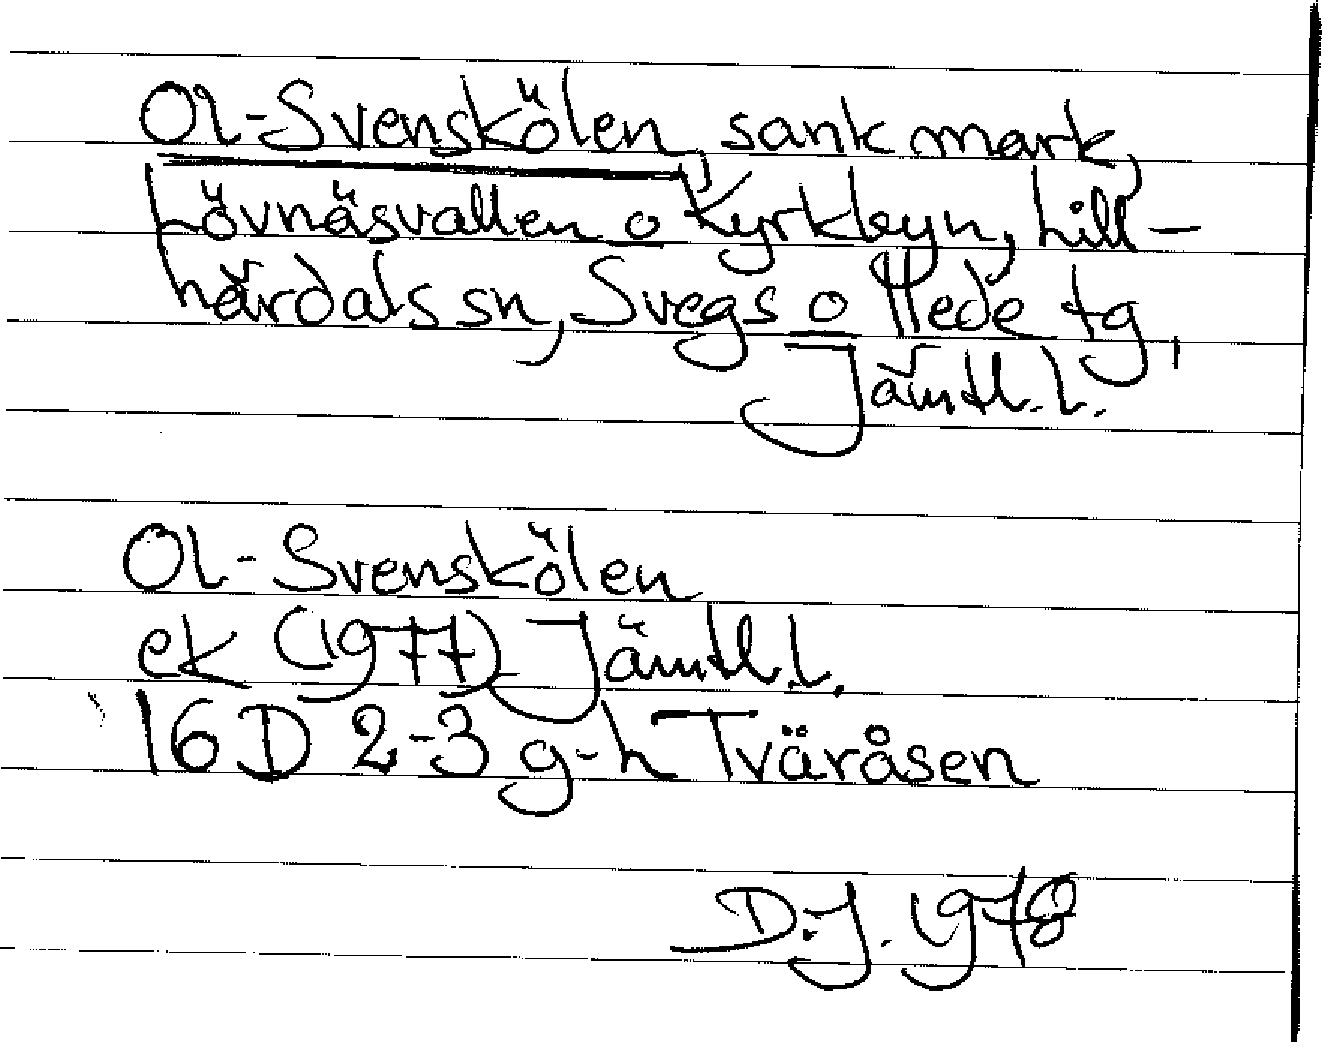 Ol-Svenskölen, sank mark,
Lövnäsvallen o Kyrkbyn, Lill-
härdals sn, Svegs o Hede tg,
Jämtl. l.
Ol-Svenskölen
ek (1977) Jämtl.l.
16 D 2-3 g-h Tväråsen
D.J. 1978